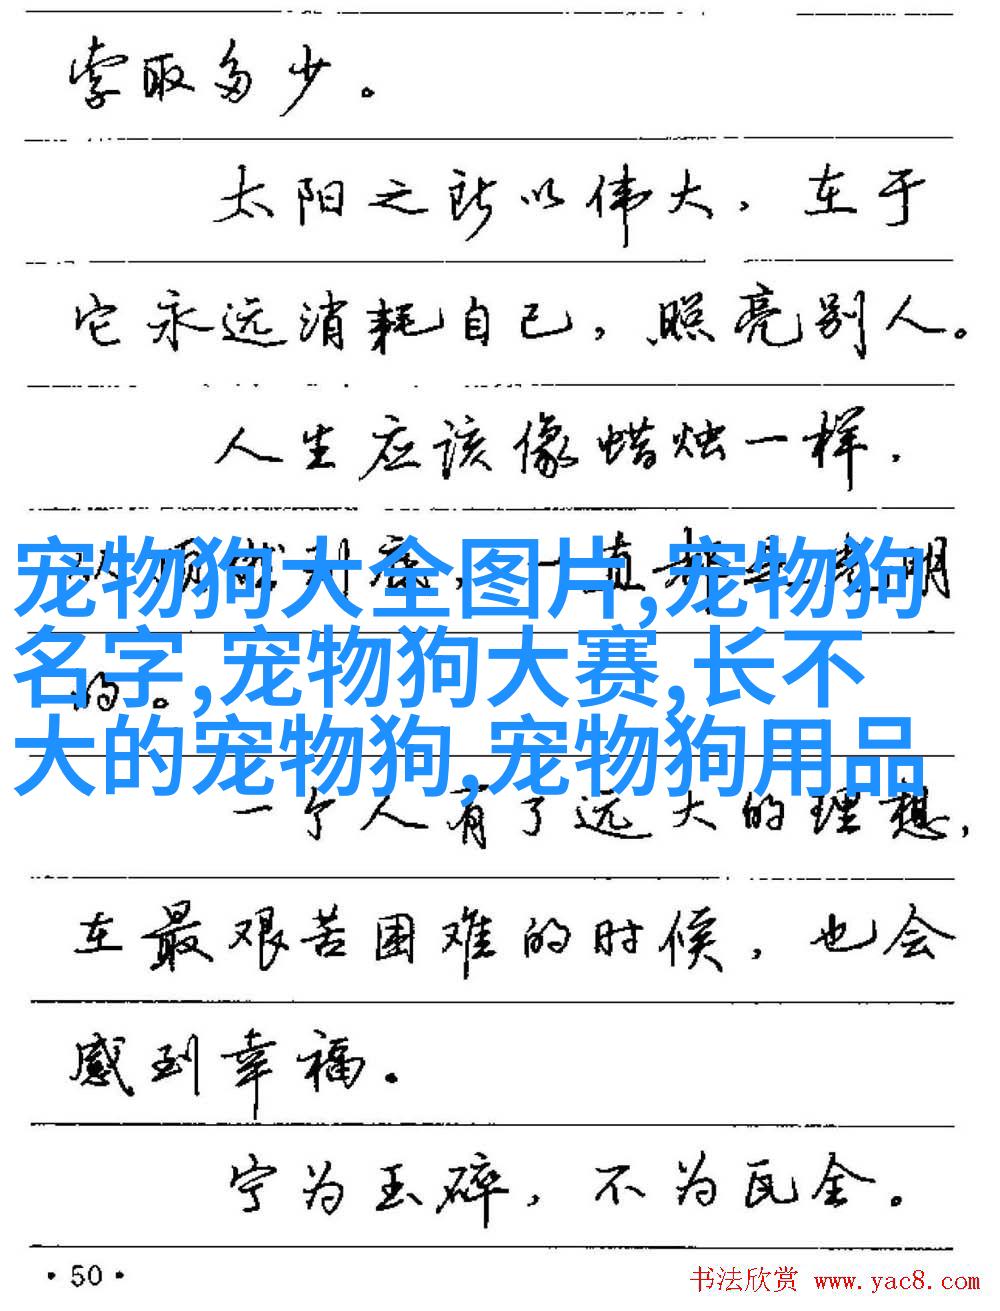 索取多少。
太阳之所以伟大，在于
它永远消耗自己，照亮别人。
人生应该像蜡烛一样，
从顶燃到底，一直都是光明
的。
宠物狗大全图片,宠物狗
名字,宠物狗大赛,长不
大的宠物狗,宠物狗用品
一个人有了远大的理想，
在最艰苦困难的时候，也会
感到幸福。
宁为玉碎，不为瓦全。
·50·
书法欣赏 www.yac8.com